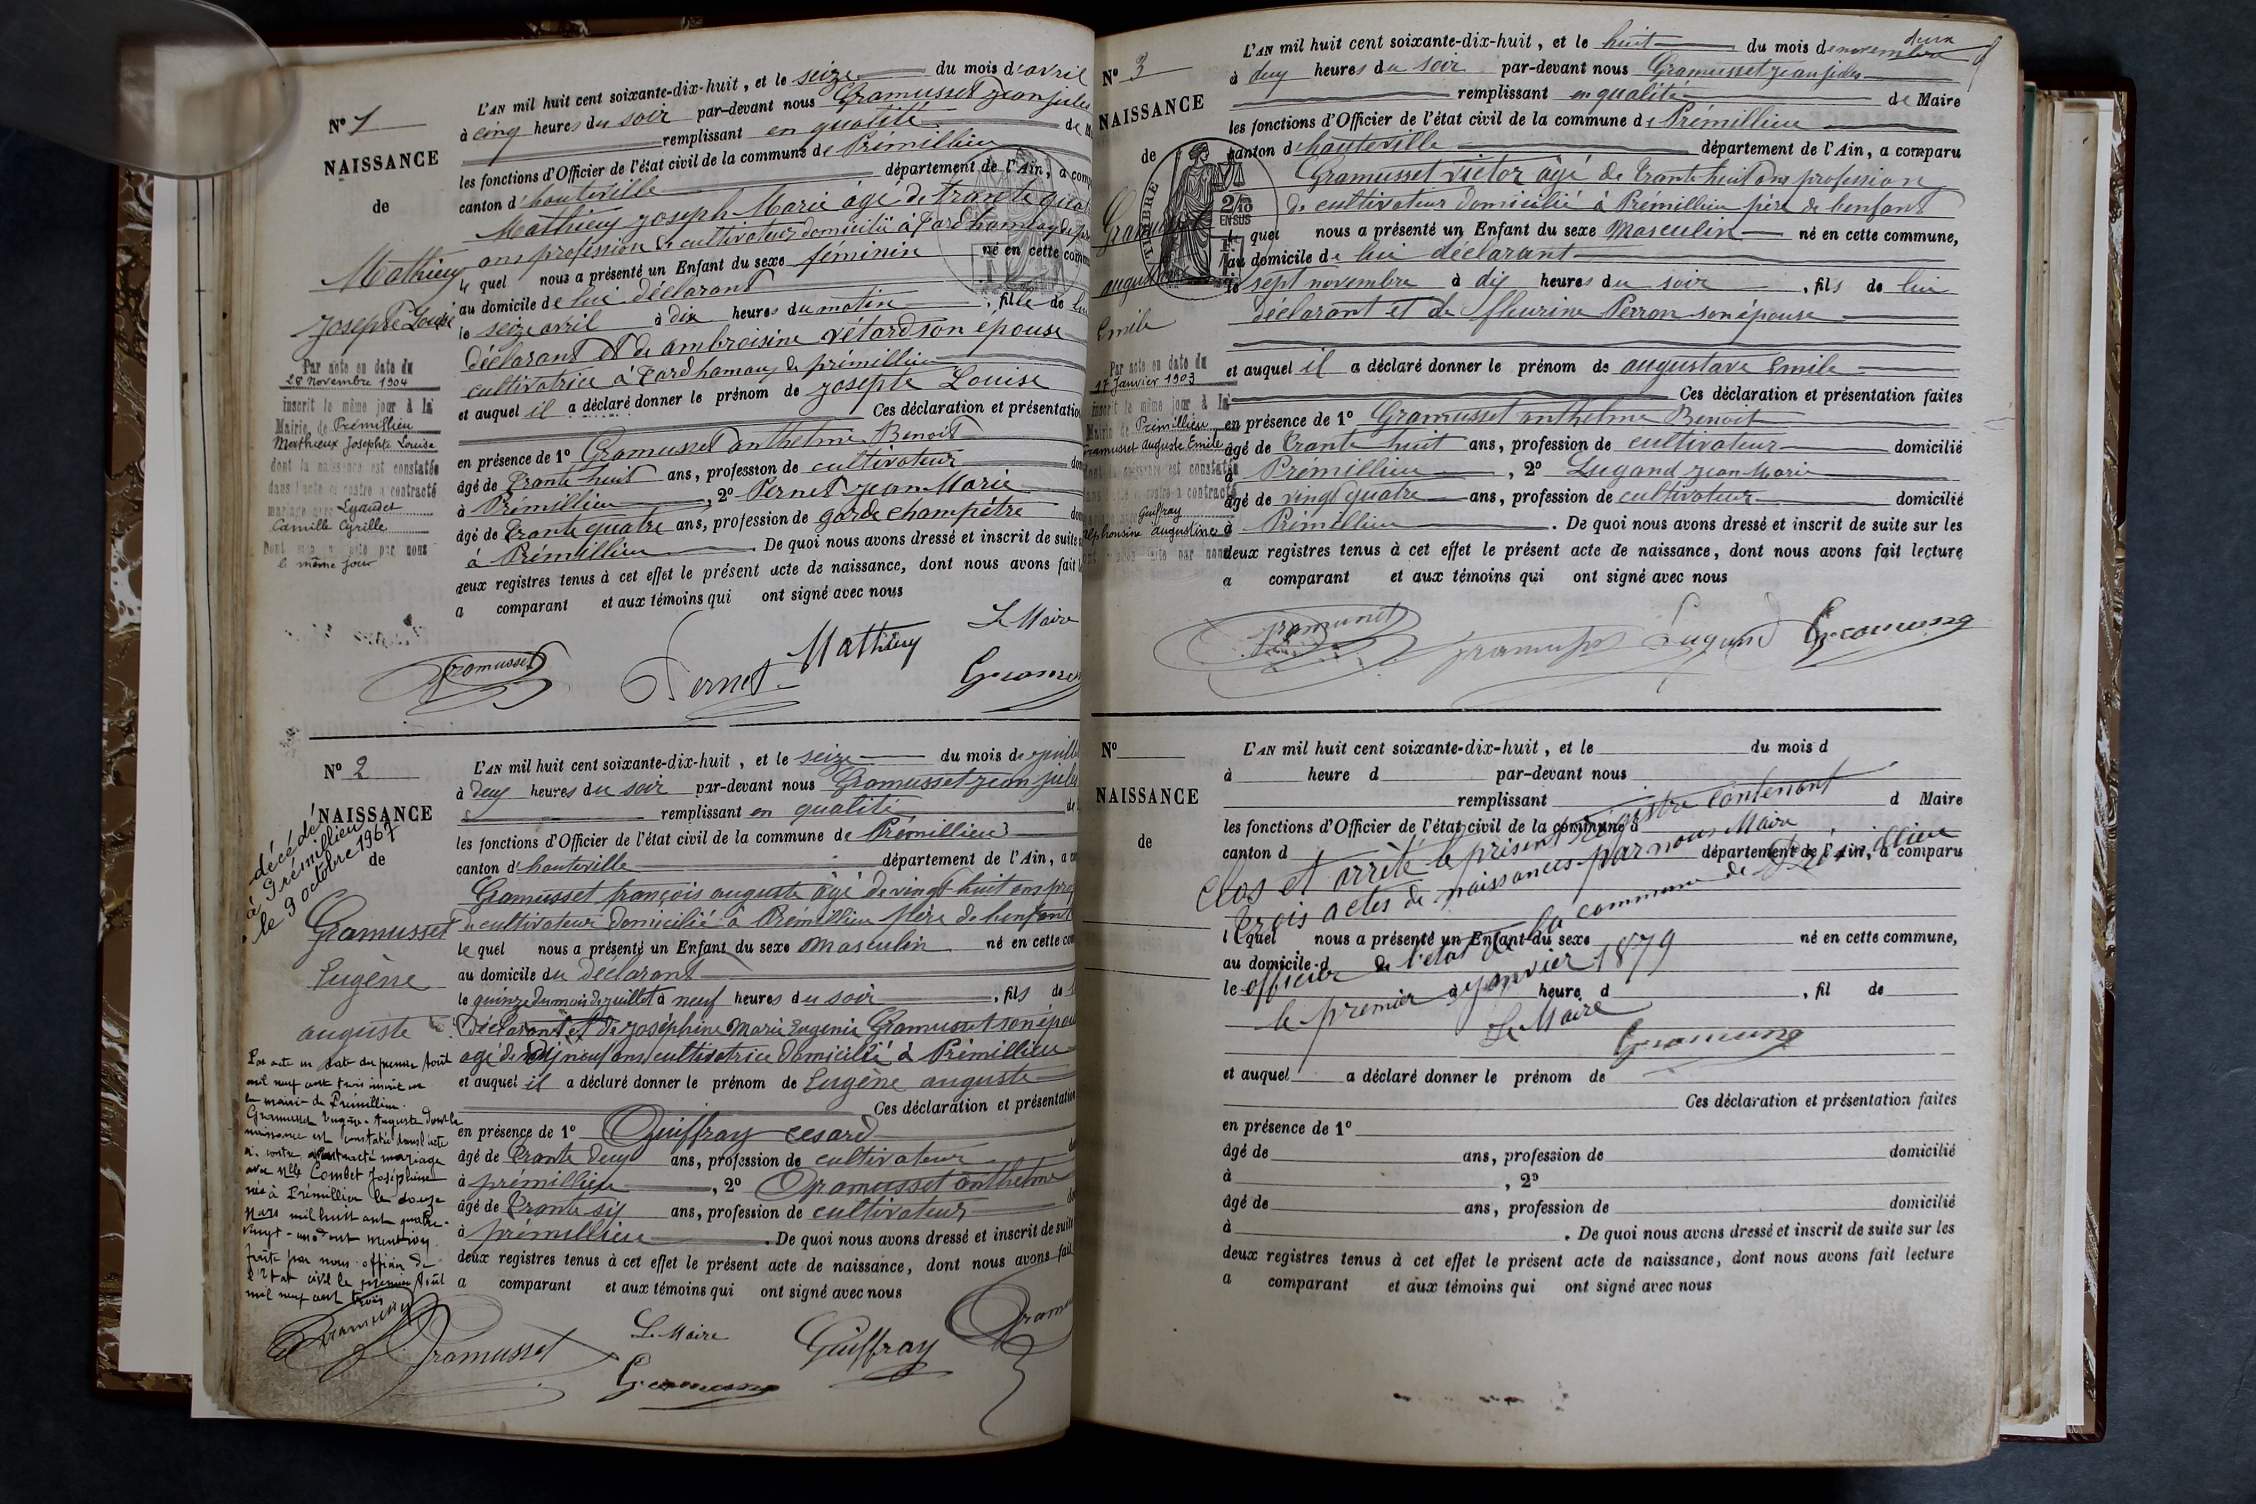 Nº 1
NAISSANCE
de
Mathieu
Josephte Louise
Par acte en date du
28 Novembre 1904
inscrit le même jour à la
Mairie de Prémillieu
Mathieux Josephte Louise
dont la naissance est constatée
dans l'acte ci contre a contracté
mariage avec Lyaudet
Camille Cyrille
Dont mention faite par nous
le même jour
L'AN mil huit cent soixante-dix-huit, et le seize du mois d'avril
à cinq heures du soir par-devant nous Gramusset jean jules
remplissant en qualité de
les fonctions d'Officier de l'état civil de la commune de Prémillieu
canton d'hauteville département de l'Ain, a comp
Mathieu joseph Marie âgé de trante quat
ans profession de cultivateur domicilié à
le quel nous a présenté un Enfant du sexe féminin né en cette comm
au domicile de lui déclarant
le seize avril à dix heures du matin, fille de lui
déclarant et de ambroisine vétard son épouse
cultivatrice à de prémillieu
et auquel il a déclaré donner le prénom de josephte Louise
Ces déclaration et présentation
en présence de 1º Gramusset anthelme Benoit
âgé de trante huit ans, profession de cultivateur
à Prémillieu, 2º Pernet jean Marie
âgé de trante quatre ans, profession de garde champêtre
à Prémillieu. De quoi nous avons dressé et inscrit de suite
deux registres tenus à cet effet le présent acte de naissance, dont nous avons fait
a comparant et aux témoins qui ont signé avec nous
Le Maire
Gramusset Pernet Mathieu
Nº 2
NAISSANCE
de
décédé
à Prémillieu
le 9 octobre 1967
Gramusset
Eugène
auguste
Par acte en date du premier Août
mil neuf cent trois inscrit en
la mairie de Prémillieu
Gramusset Eugène Auguste dont la
naissance est constatée dans l'acte
ci contre a contracté mariage
avec Mlle Combet Joséphine
née à Prémillieu le douze
Mars mil huit cent quatre-
vingt-un dont mention
faite par nous officier de
l'Etat civil le premier Août
mil neuf cent trois
L'AN mil huit cent soixante-dix-huit, et le seize du mois de juill
à deux heures du soir par-devant nous Gramusset jean jules
remplissant en qualité de
les fonctions d'Officier de l'état civil de la commune de Prémillieu
canton d'hauteville département de l'Ain, a co
Gramusset françois auguste âgé de vingt huit ans prof
de cultivateur domicilié à Prémillieu père de lenfant
le quel nous a présenté un Enfant du sexe masculin né en cette com
au domicile du déclarant
le quinze du mois de juillet à neuf heures du soir, fils de
déclarant et de joséphine Marie Eugenie Gramusset son épou
agé de dix neuf ans cultivatrice domicilié à Prémillieu
et auquel il a déclaré donner le prénom de Eugène auguste
Ces déclaration et présentation
en présence de 1º Guiffray cesard
âgé de trante deux ans, profession de cultivateur
à prémillieu, 2º Gramusset anthelme
âgé de trante six ans, profession de cultivateur
à prémillieu. De quoi nous avons dressé et inscrit de suite
deux registres tenus à cet effet le présent acte de naissance, dont nous avons fait
a comparant et aux témoins qui ont signé avec nous
Le Maire
Gramusset Guiffray
Nº 3
NAISSANCE
de
Emile
Par acte en date du
17 Janvier 1903
inscrit le même jour à la
Mairie de Prémillieu
Gramusset Auguste Emile
Guiffray
Alphonsine Augustine
TIMBRE
2/10
EN SUS
L'AN mil huit cent soixante-dix-huit, et le huit du mois de novembre
à deux heures du soir par-devant nous Gramusset jean jules
remplissant en qualité de Maire
les fonctions d'Officier de l'état civil de la commune de Prémillieu
canton d'hauteville département de l'Ain, a comparu
Gramusset victor âgé de trante huit ans profession
de cultivateur domicilié à Prémillieu père de lenfant
le quel nous a présenté un Enfant du sexe Masculin né en cette commune,
au domicile de lui déclarant
le sept novembre à dix heures du soir, fils de lui
déclarant et de fleurine Perron son épouse
et auquel il a déclaré donner le prénom de augustave Emile
Ces déclaration et présentation faites
en présence de 1º Gramusset anthelme Benoit
âgé de trante huit ans, profession de cultivateur domicilié
à Prémillieu, 2º Lugand jean Marie
âgé de vingt quatre ans, profession de cultivateur domicilié
à Prémillieu. De quoi nous avons dressé et inscrit de suite sur les
deux registres tenus à cet effet le présent acte de naissance, dont nous avons fait lecture
a comparant et aux témoins qui ont signé avec nous
Gramusset Lugand
Nº
NAISSANCE
de
L'AN mil huit cent soixante-dix-huit, et le du mois d
à heure d par-devant nous
remplissant d Maire
les fonctions d'Officier de l'état civil de la commune d
canton d département de l'Ain, a comparu
Clos et arrêté le présent registre contenant
trois actes de naissances par nous Maire
officier de l'état de la commune de Prémillieu
le premier janvier 1879
Le Maire
l quel nous a présenté un Enfant du sexe né en cette commune,
au domicile d
le à heure d, fil de
et auquel a déclaré donner le prénom de
Ces déclaration et présentation faites
en présence de 1º
âgé de ans, profession de domicilié
à, 2º
âgé de ans, profession de domicilié
à. De quoi nous avons dressé et inscrit de suite sur les
deux registres tenus à cet effet le présent acte de naissance, dont nous avons fait lecture
a comparant et aux témoins qui ont signé avec nous